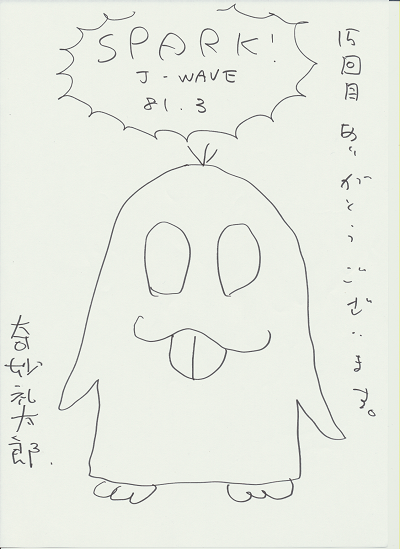 SPARK!
J-WAVE
81.3
15回目 ありがとうございます。
奇妙礼太郎.